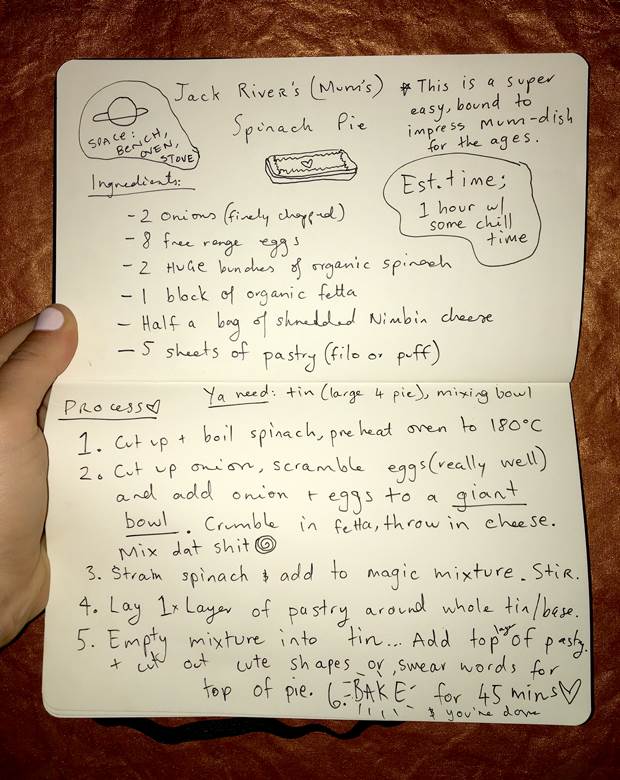 Jack River's (Mum's)
Spinach Pie
* This is a super
easy, bound to
impress Mum-dish
for the ages.
SPACE:
BENCH,
OVEN,
STOVE
Est. time;
1 hour w/
some chill
time
Ingredients:
- 2 onions (finely chopped)
- 8 free range eggs
- 2 HUGE bunches of organic spinach
- 1 block of organic fetta
- Half a bag of shredded Nimbin cheese
- 5 sheets of pastry (filo or puff)
Ya need: tin (large 4 pie), mixing bowl
PROCESS
1. Cut up + boil spinach, preheat oven to 180°C
2. Cut up onion, scramble eggs (really well)
and add onion + eggs to a giant
bowl. Crumble in fetta, throw in cheese.
Mix dat shit
3. Strain spinach & add to magic mixture. Stir.
4. Lay 1x Layer of pastry around whole tin/base.
5. Empty mixture into tin... Add top layer of pastry
+ cut out cute shapes or swear words for
top of pie. 6. BAKE for 45 mins
& you're done